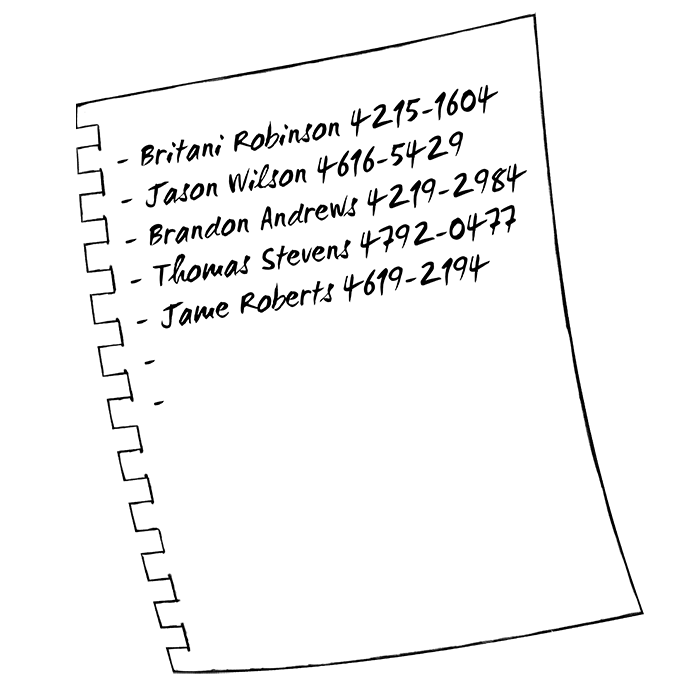 - Britani Robinson 4215-1604
- Jason Wilson 4616-5429
- Brandon Andrews 4219-2984
- Thomas Stevens 4792-0477
- Jame Roberts 4619-2194
-
-